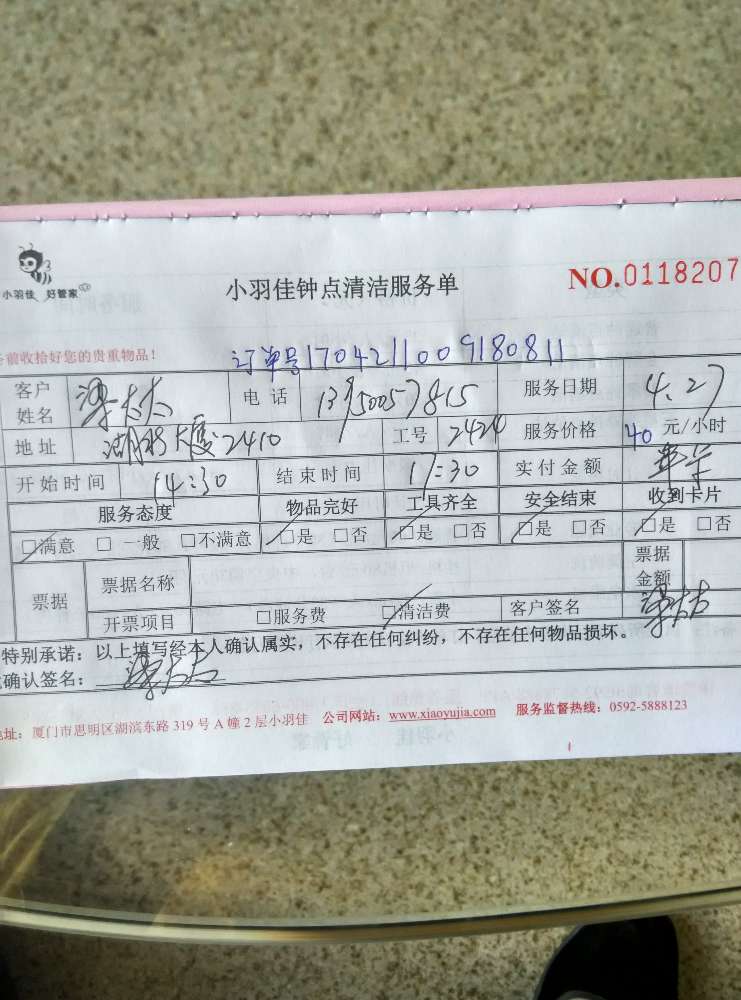 小羽佳 好管家
小羽佳钟点清洁服务单
NO.0118207
前收拾好您的贵重物品！
订单号1704211009180811
客户姓名 电话 服务日期 4.27
地址 2410 工号 2424 服务价格 40 元/小时
开始时间 14:30 结束时间 17:30 实付金额
服务态度 物品完好 工具齐全 安全结束 收到卡片
□满意 □一般 □不满意 □是 □否 □是 □否 □是 □否 □是 □否
票据 票据名称 票据金额
开票项目 □服务费 □清洁费 客户签名
特别承诺：以上填写经本人确认属实，不存在任何纠纷，不存在任何物品损坏。
确认签名：
地址：厦门市思明区湖滨东路 319 号 A 幢 2 层小羽佳 公司网站：www.xiaoyujia.com 服务监督热线：0592-5888123